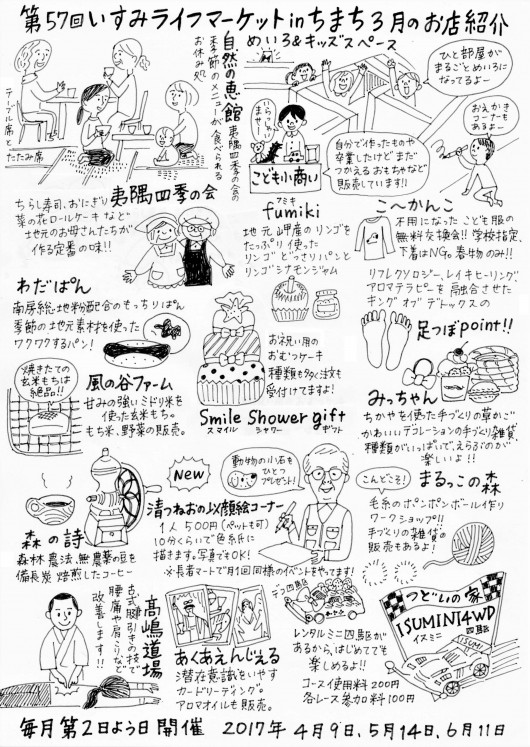 第57回いすみライフマーケットinちまち3月のお店紹介
テーブル席と
たたみ席
自然の恵館
夷隅四季の会の
季節のメニューが食べられる
お休み処
めいろ&キッズスペース
ひと部屋が
まるごとめいろに
なってるよー
おえかき
コーナーも
あるよー
いらっしゃい
ませー
こども小商い
自分で作ったものや
卒業したけどまだ
つかえるおもちゃなど
販売しています!!
夷隅四季の会
ちらし寿司、おにぎり
菜の花ロールケーキなど
地元のお母さんたちが
作る定番の味!!
アミキ
fumiki
地元岬産のリンゴを
たっぷり使った
リンゴどっさりパンと
リンゴシナモンジャム
こ〜かんこ
不用になったこども服の
無料交換会!!学校指定、
下着はNG。春物のみ!!
リフレクソロジー、レイキヒーリング、
アロマテラピーを融合させた
キングオブデトックスの
足つぼpoint!!
わだぱん
南房総地粉配合のもっちりぱん
季節の地元素材を使った
ワクワクするパン!
焼きたての
玄米もちは
絶品!!
風の谷ファーム
甘みの強いみどり米を
使った玄米もち。
もち米、野菜の販売。
お祝い用の
おむつケーキ
種類も多く注文も
受付けてますよ!
Smile Shower gift
スマイル シャワー ギフト
みっちゃん
ちかやを使った手づくりの草かご
かわいいデコレーションの手づくり雑貨、
種類がいっぱいで、えらぶのが
楽しいよ!!
森の詩
森林農法、無農薬の豆を
備長炭焙煎したコーヒー
New
動物の小石を
ひとつ
プレゼント!
清つねおの以顔絵コーナー
1人500円(ペットも可)
10分くらいで色紙に
描きます。写真でもOK!
※長者マートで月1回同様のイベントをやってます!
こんどこそ!
まるっこの森
毛糸のポンポンボール作り
ワークショップ!!
手づくりの雑貨の
販売もあるよ!
髙嶋道場
古式腱引きの技で
腰痛や肩こりなど
改善します!!
あくあえんじぇる
潜在意識をいやす
カードリーディング。
アロマオイルも販売。
デコ四駆
レンタルミニ四駆が
あるから、はじめてでも
楽しめるよ!!
コース使用料200円
各レース参加料100円
つどいの家
ISUMINI4WD
イスミニ 四駆
毎月第2日よう日開催 2017年4月9日、5月14日、6月11日